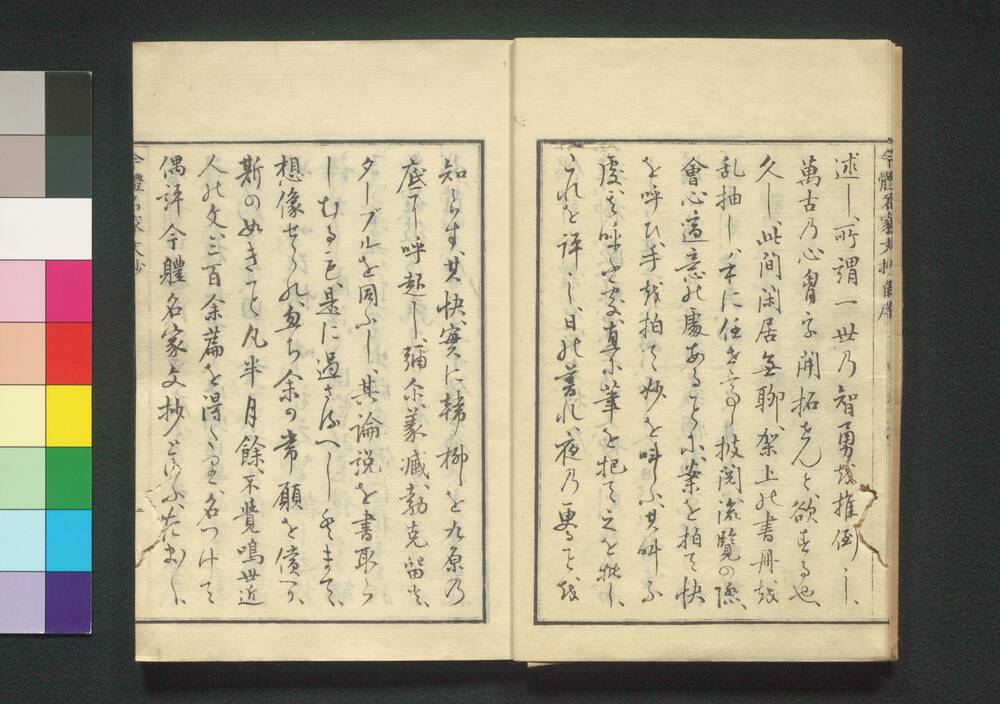 述し、所謂一世の智勇を推倒し、
萬古の心胷を開拓せんと欲する也、
久し、此間閑居無聊、架上の書冊を
乱抽し、手に任せて披閲流覧の際、
會心適意の處あることに、案を拍て快
を呼ひ、手を拍て妙を叫ふ、其叫ふ
處、呼ふ處、直に筆を把て之を批し、
これを評し、日の暮れ、夜の更るを
知らす、其快實に韓柳を九原の
底に呼起し、彌尓、義臧、勃克留と、
ターブルを同ふし、其論説を書取ら
しむるも、是に過さるへしとまて、
想像せられ、忽ち余の常願を償へり、
斯の如きこと凡半月餘、不覺鳴世近
人の文、三百余篇を得たり、名つけて
偶評今體名家文抄といふ、
今體名家文抄